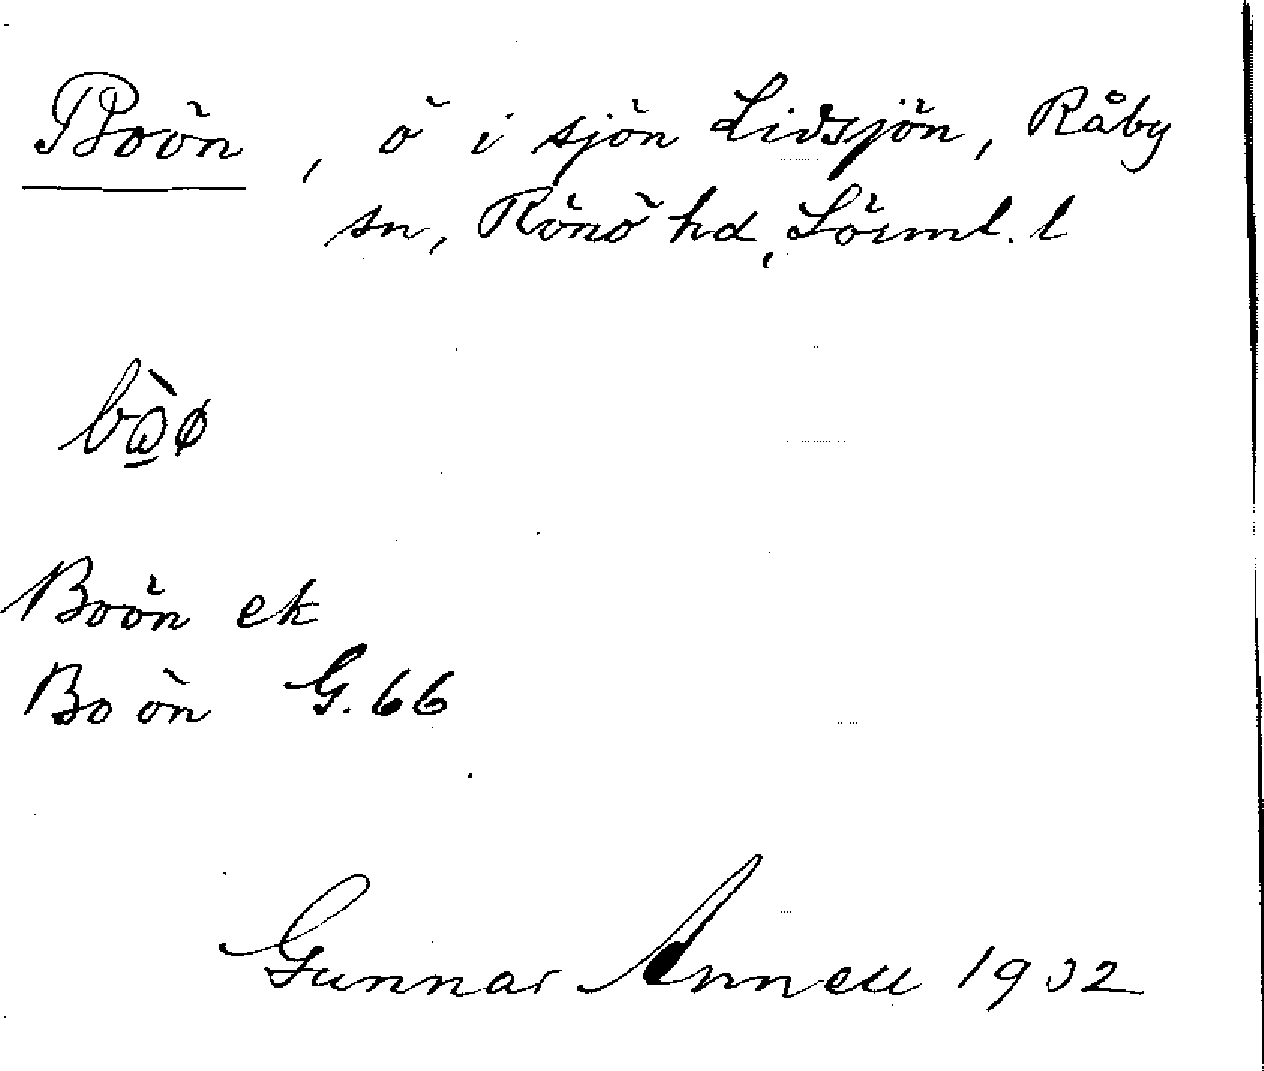 Boön, ö i sjön Lidsjön, Råby
sn, Rönö hd, Sörml. l
bὼ̲ø
Boön ek
Bo ön G. 66
Gunnar Annell 1932